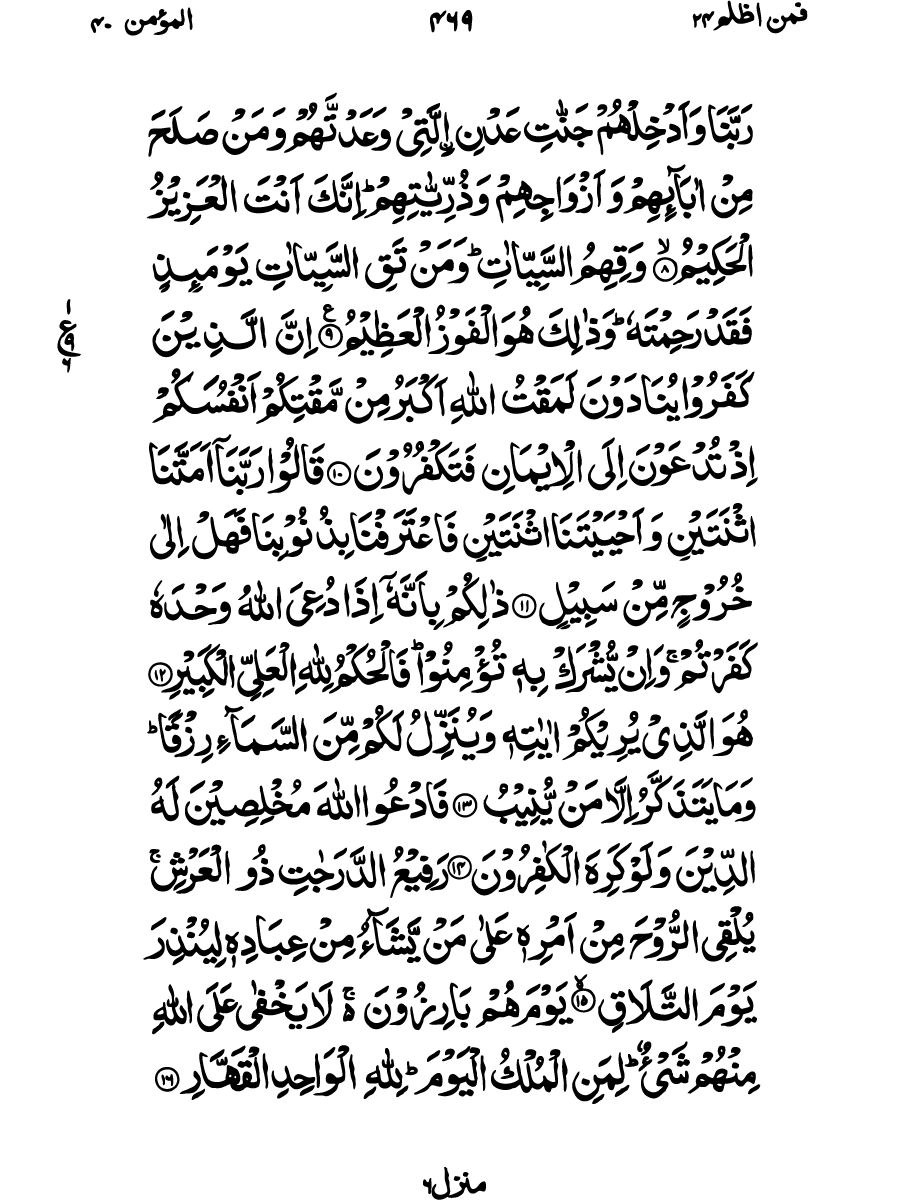 فمن اظلم ٢٤ ٤٦٩ المؤمن ٤٠
رَبَّنَا وَاَدْخِلْهُمْ جَنّٰتِ عَدْنِ ۣالَّتِیْ وَعَدْتَّهُمْ وَمَنْ صَلَحَ
مِنْ اٰبَآىِٕهِمْ وَ اَزْوَاجِهِمْ وَذُرِّیّٰتِهِمْ ؕ اِنَّكَ اَنْتَ الْعَزِیْزُ
الْحَكِیْمُ ۙ﴿۸﴾ وَقِهِمُ السَّیِّاٰتِ ؕ وَمَنْ تَقِ السَّیِّاٰتِ یَوْمَىِٕذٍ
فَقَدْ رَحِمْتَهٗ ؕ وَذٰلِكَ هُوَ الْفَوْزُ الْعَظِیْمُ ﴿۹﴾ ع اِنَّ الَّذِیْنَ
١ ع ٩ ٦
كَفَرُوْا یُنَادَوْنَ لَمَقْتُ اللّٰهِ اَكْبَرُ مِنْ مَّقْتِكُمْ اَنْفُسَكُمْ
اِذْ تُدْعَوْنَ اِلَی الْاِیْمَانِ فَتَكْفُرُوْنَ ﴿۱۰﴾ قَالُوْا رَبَّنَاۤ اَمَتَّنَا
اثْنَتَیْنِ وَ اَحْیَیْتَنَا اثْنَتَیْنِ فَاعْتَرَفْنَا بِذُنُوْبِنَا فَهَلْ اِلٰی
خُرُوْجٍ مِّنْ سَبِیْلٍ ﴿۱۱﴾ ذٰلِكُمْ بِاَنَّهٗۤ اِذَا دُعِیَ اللّٰهُ وَحْدَهٗ
كَفَرْتُمْ ۚ وَاِنْ یُّشْرَكْ بِهٖ تُؤْمِنُوْا ؕ فَالْحُكْمُ لِلّٰهِ الْعَلِیِّ الْكَبِیْرِ ﴿۱۲﴾
هُوَ الَّذِیْ یُرِیْكُمْ اٰیٰتِهٖ وَیُنَزِّلُ لَكُمْ مِّنَ السَّمَآءِ رِزْقًا ؕ
وَمَا یَتَذَكَّرُ اِلَّا مَنْ یُّنِیْبُ ﴿۱۳﴾ فَادْعُوا اللّٰهَ مُخْلِصِیْنَ لَهُ
الدِّیْنَ وَلَوْ كَرِهَ الْكٰفِرُوْنَ ﴿۱۴﴾ رَفِیْعُ الدَّرَجٰتِ ذُو الْعَرْشِ ۚ
یُلْقِی الرُّوْحَ مِنْ اَمْرِهٖ عَلٰی مَنْ یَّشَآءُ مِنْ عِبَادِهٖ لِیُنْذِرَ
یَوْمَ التَّلَاقِ ۙ﴿۱۵﴾ یَوْمَ هُمْ بَارِزُوْنَ ۬ۚ لَا یَخْفٰی عَلَی اللّٰهِ
مِنْهُمْ شَیْءٌ ؕ لِمَنِ الْمُلْكُ الْیَوْمَ ؕ لِلّٰهِ الْوَاحِدِ الْقَهَّارِ ﴿۱۶﴾
منزل ٦